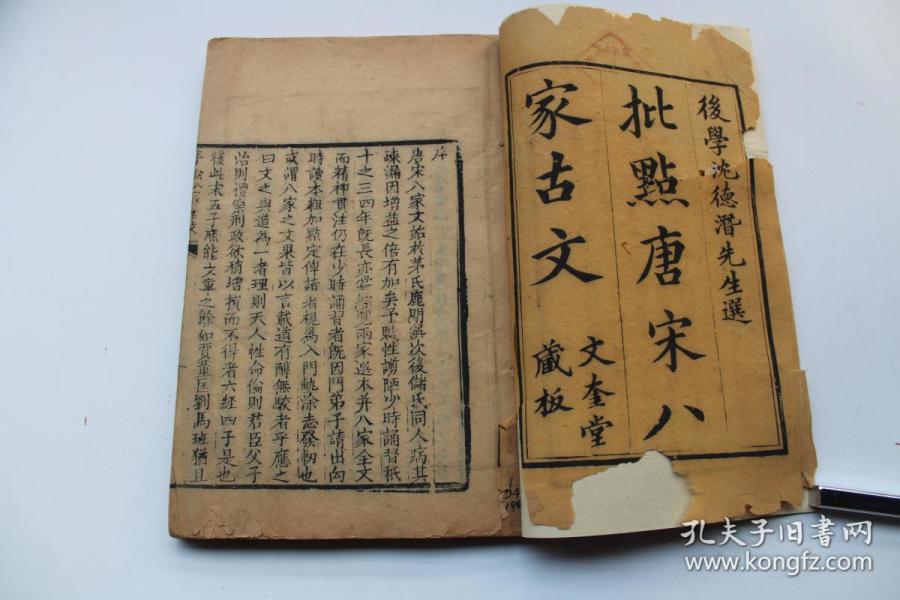 後學沈德潛先生選
批點唐宋八
家古文
文奎堂
藏板
序
唐宋八家文始於茅氏鹿門次後儲氏同人病其
疎漏因增益之倍有加矣予賦性謭陋少時誦習祇
十之三四年既長亦嘗綜覽兩家選本并八家全文
而精神貫注仍在少時誦習者既因門弟子請出向
時讀本粗加點定俾讀者視爲入門軌涂志發軔也
或謂八家之文果皆以言載道有醇無駁者乎應之
曰文之與道爲一者理則天人性命倫則君臣父子
治則禮樂刑政欲稍增損而不得者六經四子是也
後此宋五子庶能文章之餘如賈董匡劉馬班猶且
孔夫子旧书网
www.kongfz.com